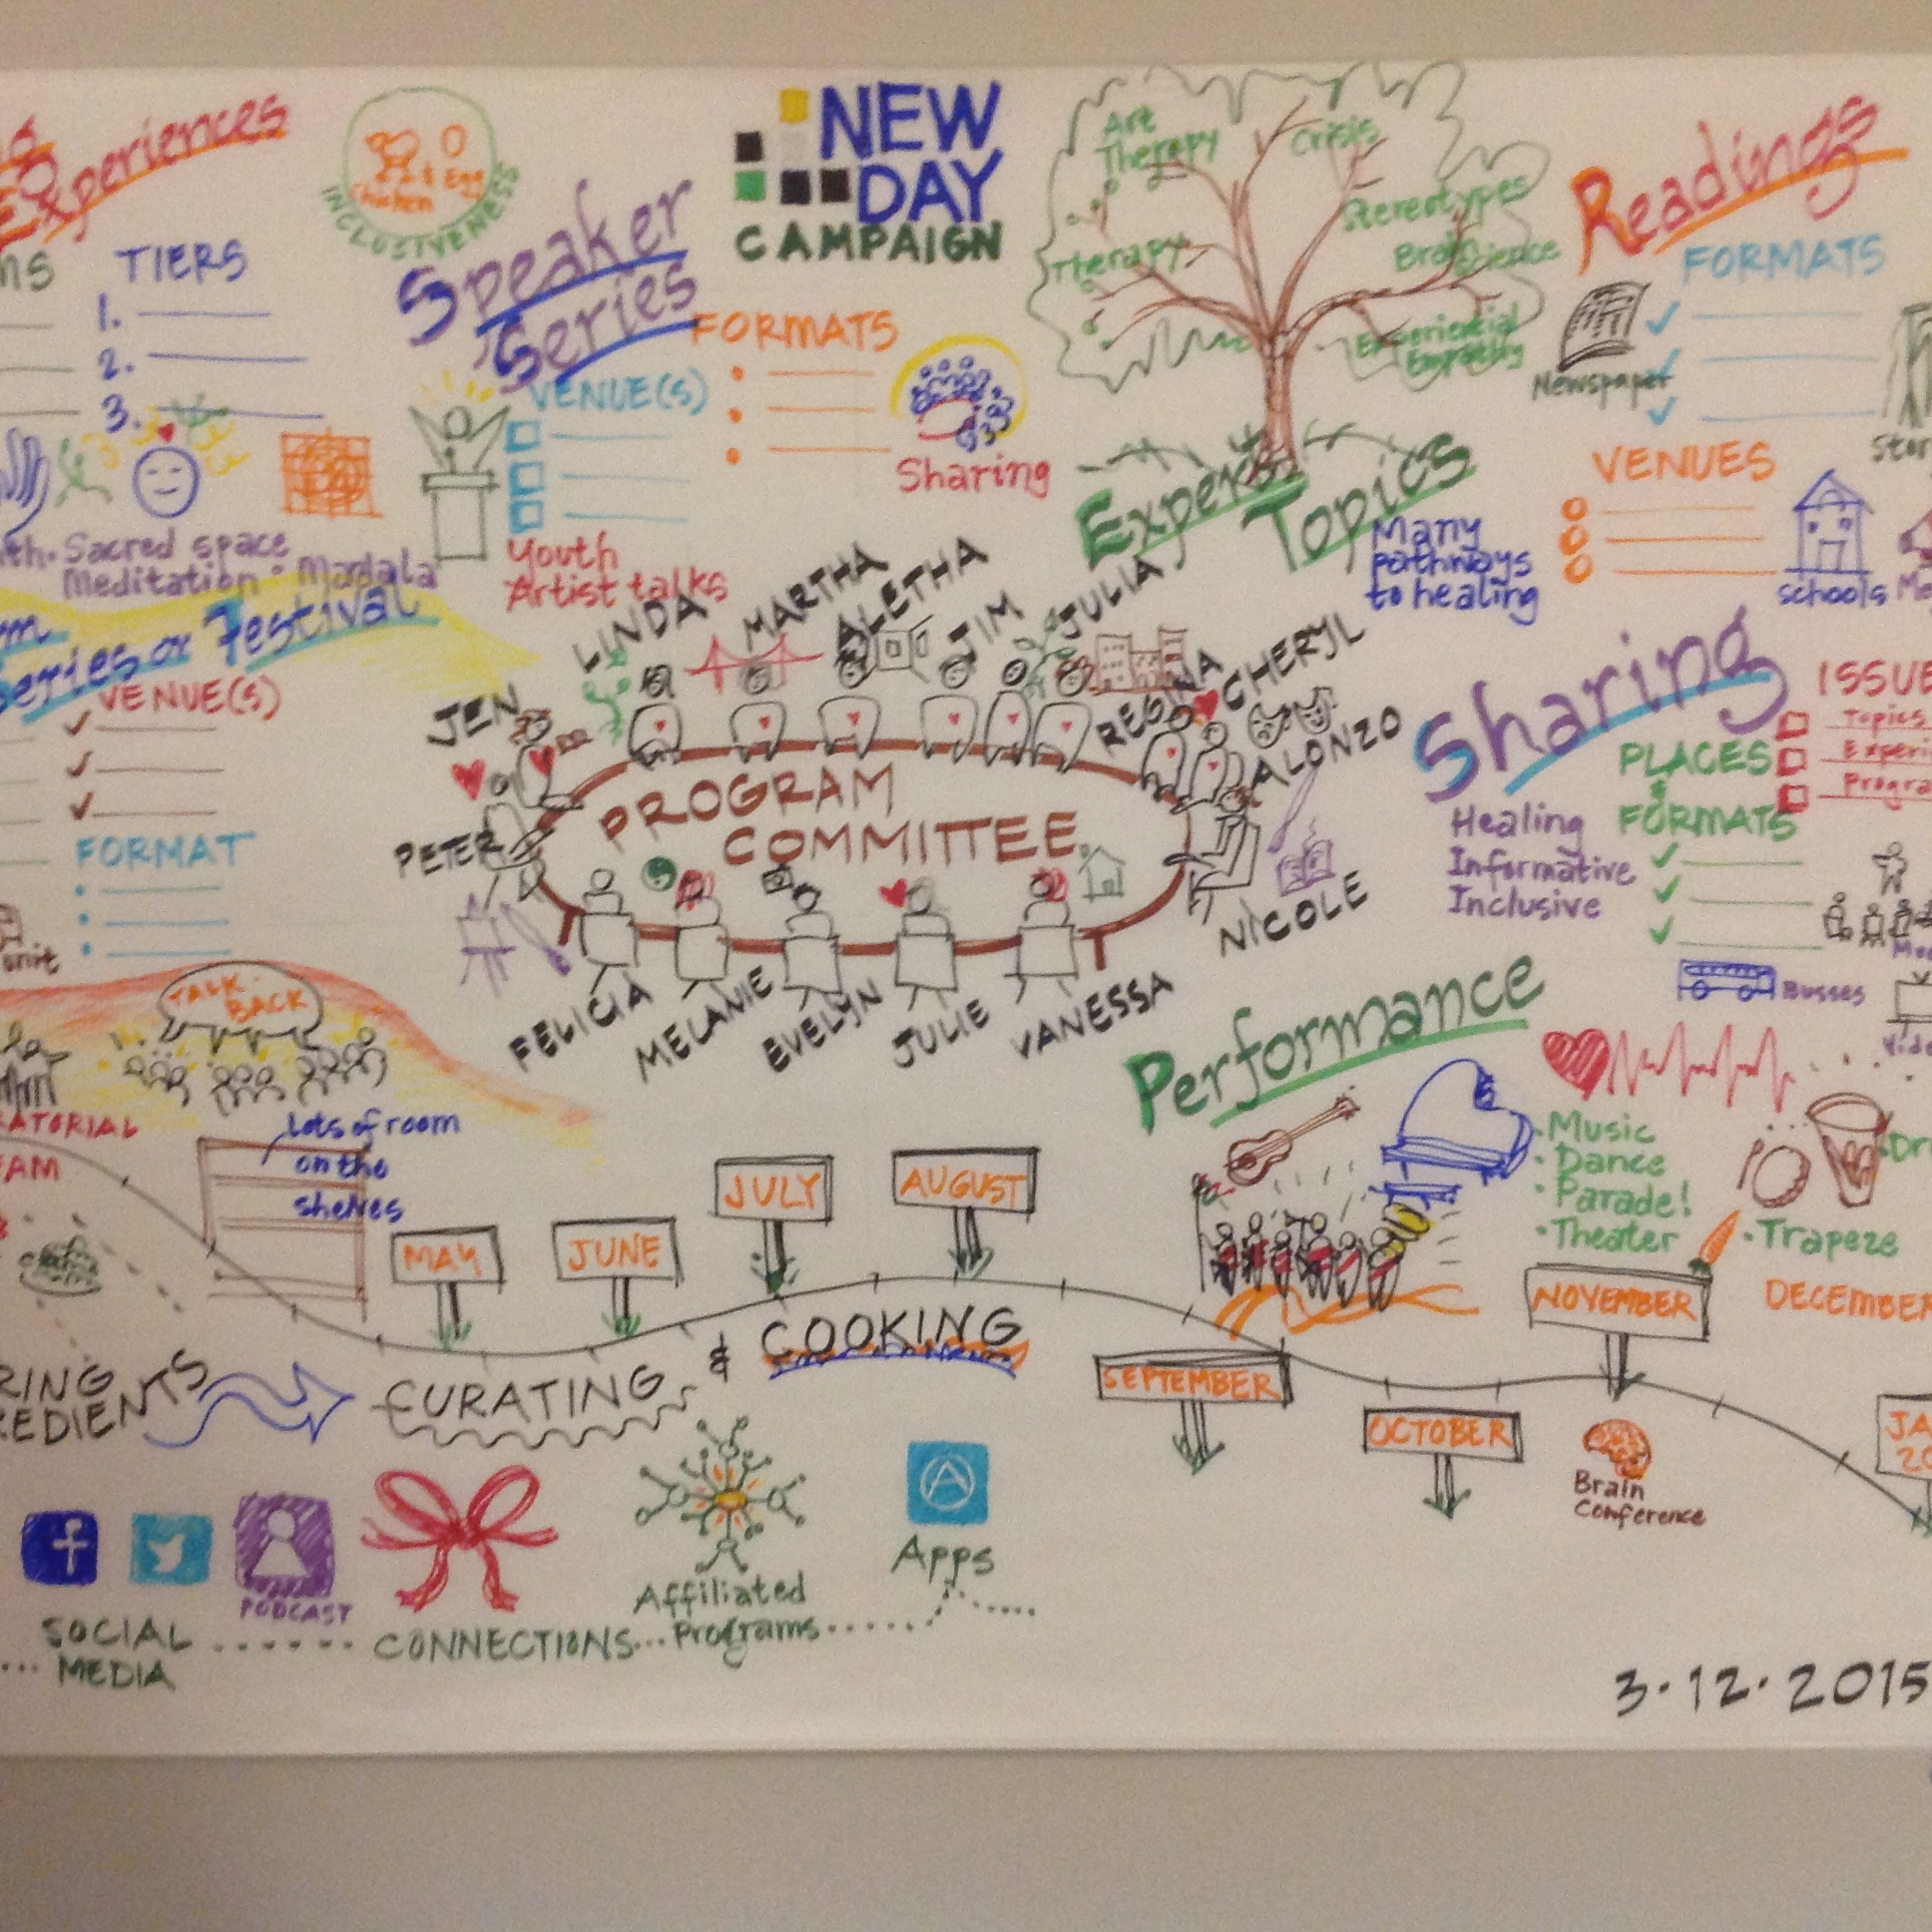 Experiences
TIERS
1.
2.
3.
Sacred space
Meditation • Mandala
Chicken & Egg
INCLUSIVENESS
Speaker
Series
FORMATS
VENUE(S)
Sharing
Youth
Artist talks
NEW
DAY
CAMPAIGN
Art
Therapy
Crisis
Stereotypes
Therapy
Experiential
Empathy
Topics
Many
pathways
to healing
Readings
FORMATS
Newspaper
VENUES
schools
Series or Festival
VENUE(S)
FORMAT
TALK
BACK
JEN
LINDA
MARTHA
ALETHA
JIM
JULIA
REGINA
CHERYL
ALONZO
PETER
PROGRAM
COMMITTEE
NICOLE
FELICIA
MELANIE
EVELYN
JULIE
VANESSA
Sharing
PLACES
&
FORMATS
Healing
Informative
Inclusive
ISSUE
Topics
Experi
Progra
Busses
Performance
• Music
• Dance
• Parade!
• Theater
• Trapeze
Lots of room
on the
shelves
MAY
JUNE
JULY
AUGUST
SEPTEMBER
OCTOBER
NOVEMBER
DECEMBER
JA
20
Brain
Conference
CURATING
&
COOKING
f
PODCAST
SOCIAL
MEDIA
CONNECTIONS
Affiliated
Programs
Apps
3·12·2015